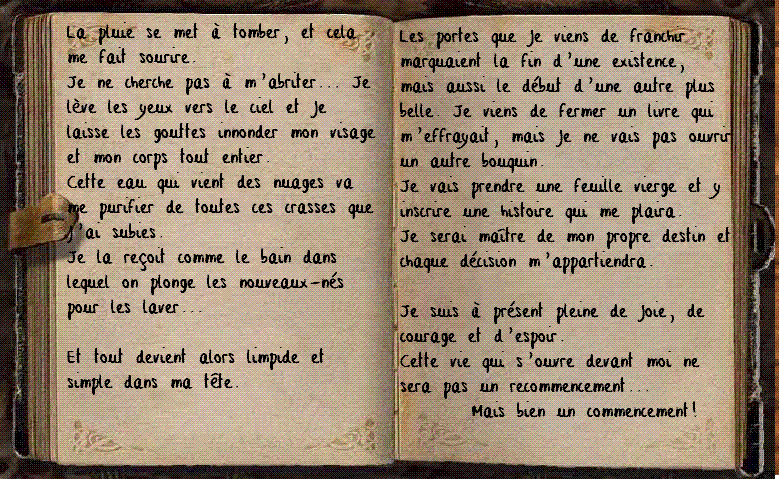 La pluie se met à tomber, et cela
me fait sourire.
Je ne cherche pas à m'abriter... Je
lève les yeux vers le ciel et je
laisse les gouttes innonder mon visage
et mon corps tout entier.
Cette eau qui vient des nuages va
me purifier de toutes ces crasses que
j'ai subies.
Je la reçoit comme le bain dans
lequel on plonge les nouveaux-nés
pour les laver...
Et tout devient alors limpide et
simple dans ma tête.
Les portes que je viens de franchir
marquaient la fin d'une existence,
mais aussi le début d'une autre plus
belle. Je viens de fermer un livre qui
m'effrayait, mais je ne vais pas ouvrir
un autre bouquin.
Je vais prendre une feuille vierge et y
inscrire une histoire qui me plaira.
Je serai maître de mon propre destin et
chaque décision m'appartiendra.
Je suis à présent pleine de joie, de
courage et d'espoir.
Cette vie qui s'ouvre devant moi ne
sera pas un recommencement...
Mais bien un commencement!